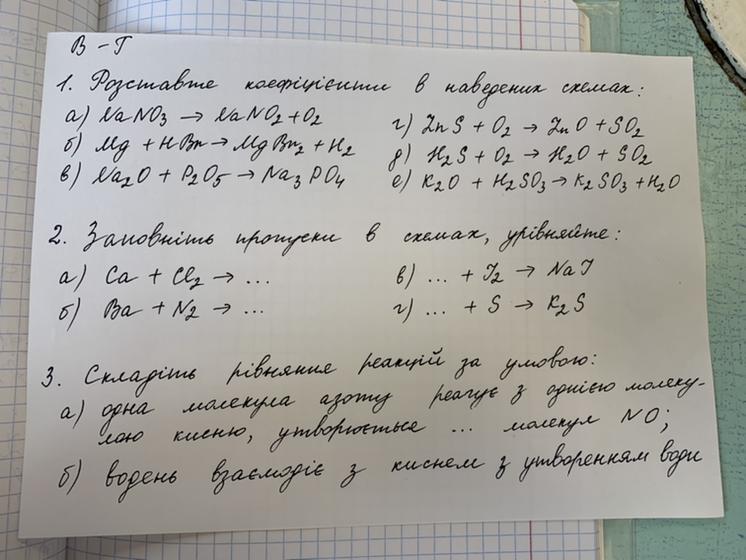 В-Г
1. Розставте коефіцієнти в наведених схемах:
а) NaNO3 → NaNO2 + O2 г) ZnS + O2 → ZnO + SO2
б) Mg + HBr → MgBr2 + H2 д) H2S + O2 → H2O + SO2
в) Na2O + P2O5 → Na3PO4 е) K2O + H2SO3 → K2SO3 + H2O
2. Заповніть пропуски в схемах, урівняйте:
а) Ca + Cl2 → ... в) ... + I2 → NaI
б) Ba + N2 → ... г) ... + S → K2S
3. Складіть рівняння реакцій за умовою:
а) одна молекула азоту реагує з однією молеку-
лою кисню, утворюється ... молекул NO;
б) водень взаємодіє з киснем з утворенням води